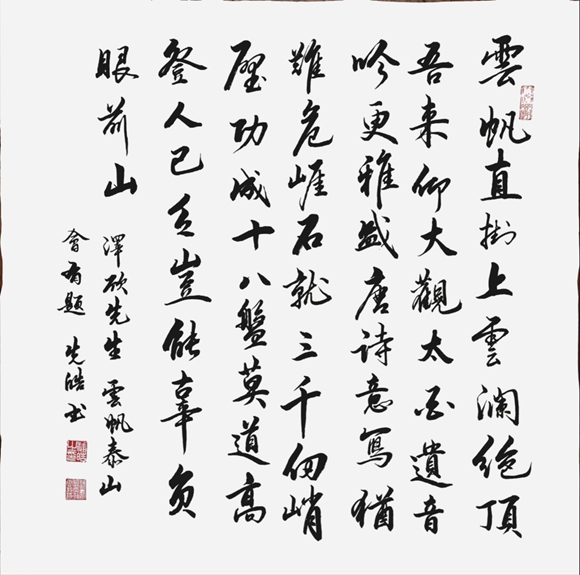 雲帆直掛上雲瀾絶頂
吾来仰大觀太白遺音
吟更雅盛唐詩意寫猶
難危崖石就三千仞峭
壁功成十八盤莫道高
登人已乏豈能辜負
眼前山
澤欣先生 雲帆泰山
會有題 先皓书